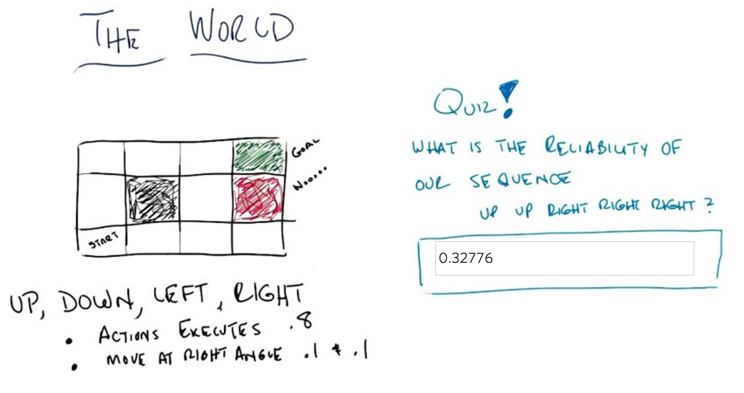 THE WORLD
GOAL
NO.....
START
UP, DOWN, LEFT, RIGHT
• ACTIONS EXECUTES .8
• MOVE AT RIGHT ANGLE .1 & .1
QUIZ!
WHAT IS THE RELIABILITY OF
OUR SEQUENCE
UP UP RIGHT RIGHT RIGHT?
0.32776